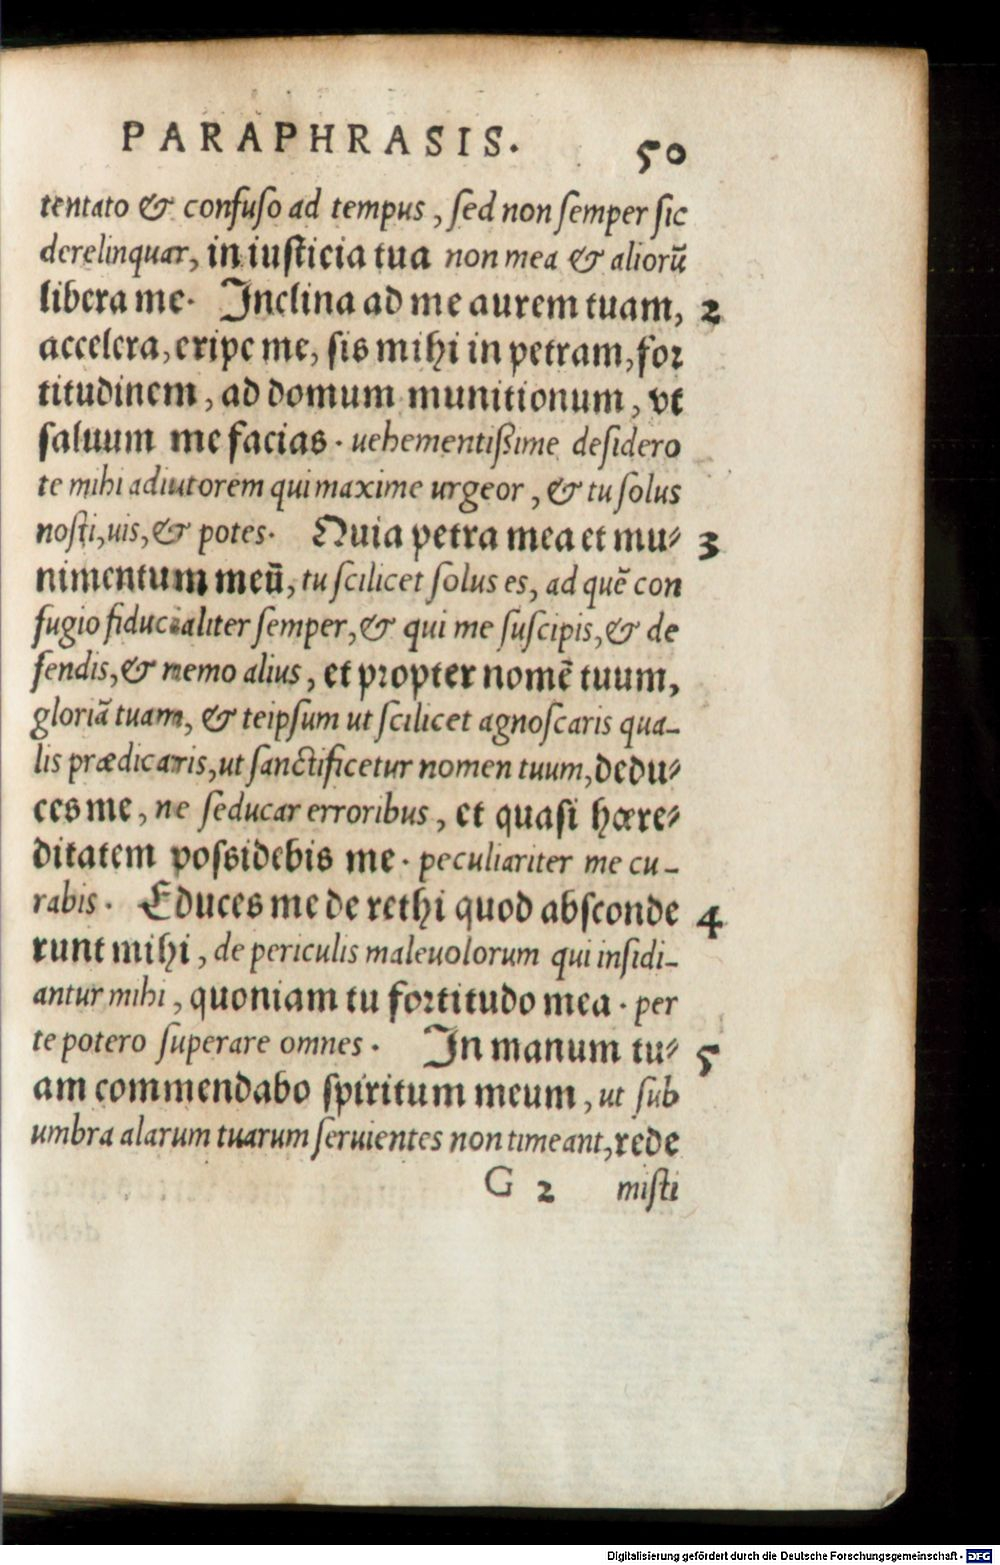 PARAPHRASIS. 50
tentato & confuso ad tempus, sed non semper sic
derelinquar, in iusticia tua non mea & aliorū
libera me. Inclina ad me aurem tuam, 2
accelera, eripe me, sis mihi in petram, for
titudinem, ad domum munitionum, vt
saluum me facias. uehementißime desidero
te mihi adiutorem qui maxime urgeor, & tu solus
nosti, uis, & potes. Quia petra mea et mu- 3
nimentum meū, tu scilicet solus es, ad quē con
fugio fiducialiter semper, & qui me suscipis, & de
fendis, & nemo alius, et propter nomē tuum,
gloriā tuam, & teipsum ut scilicet agnoscaris qua-
lis prædicaris, ut sanctificetur nomen tuum, dedu-
ces me, ne seducar erroribus, et quasi hære-
ditatem possidebis me. peculiariter me cu-
rabis. Educes me de rethi quod absconde 4
runt mihi, de periculis maleuolorum qui insidi-
antur mihi, quoniam tu fortitudo mea. per
te potero superare omnes. In manum tu- 5
am commendabo spiritum meum, ut sub
umbra alarum tuarum seruientes non timeant, rede
G 2 misti
Digitalisierung gefördert durch die Deutsche Forschungsgemeinschaft - DFG